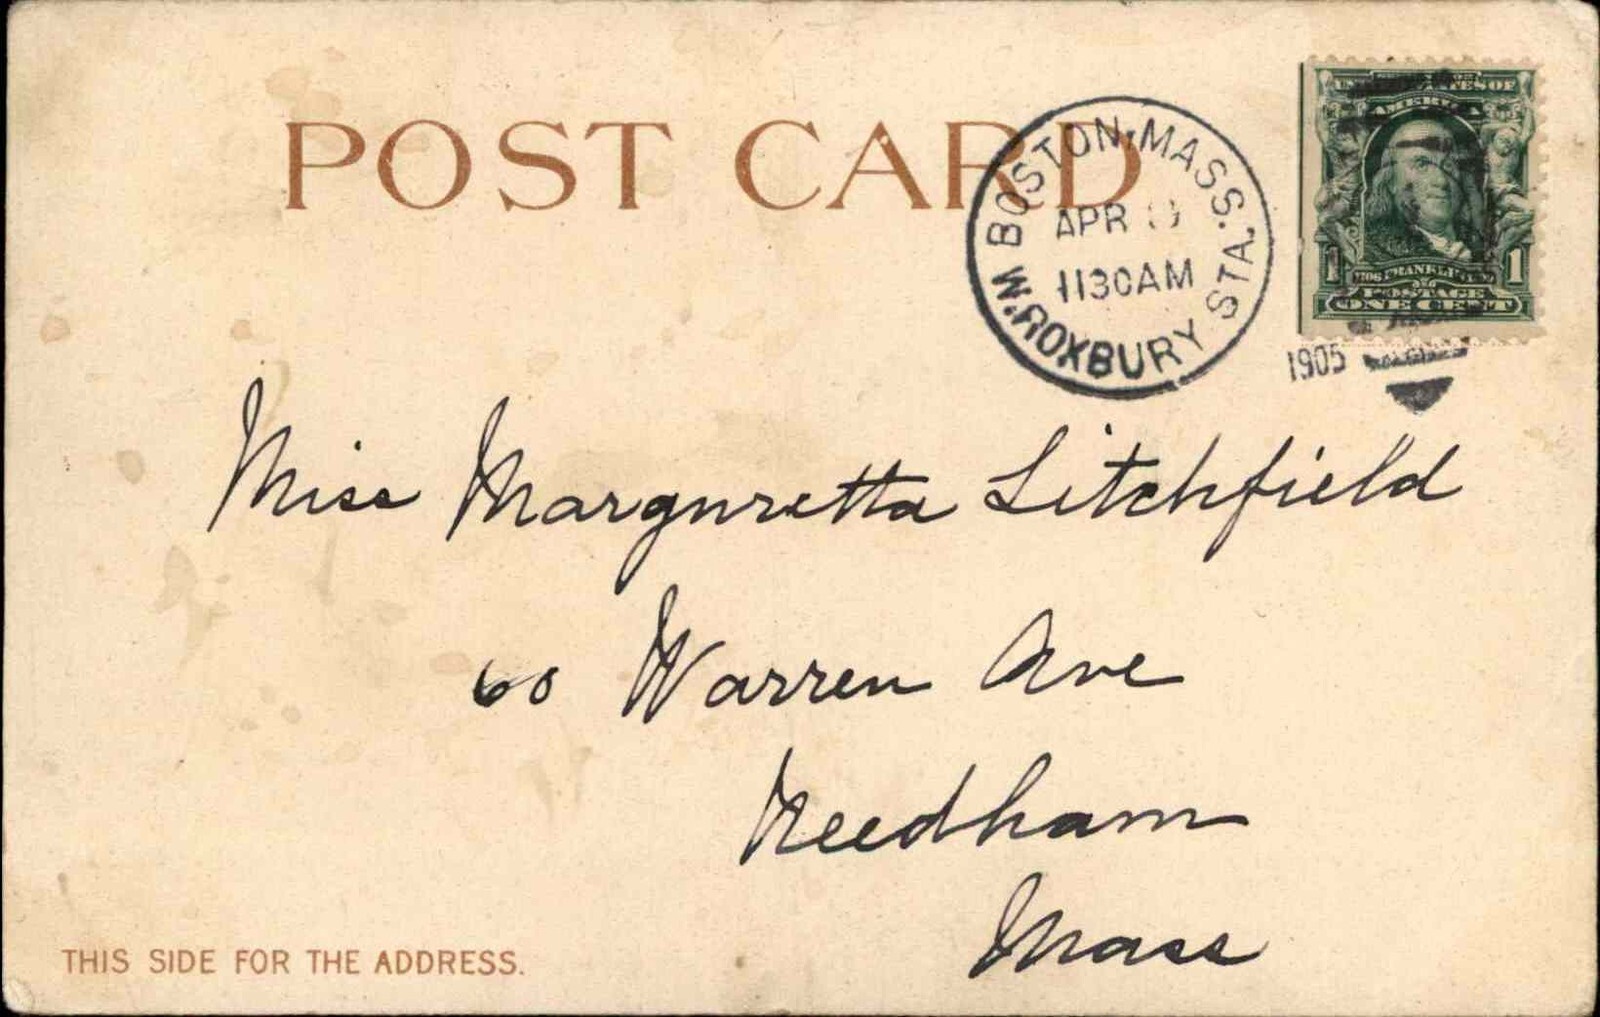 POST CARD
BOSTON, MASS.
APR
1130AM
W. ROXBURY STA.
AMERICA
1 1
POSTAGE
ONE CENT
1905
Miss Margurretta Litchfield
60 Warren Ave
Needham
Mass
THIS SIDE FOR THE ADDRESS.